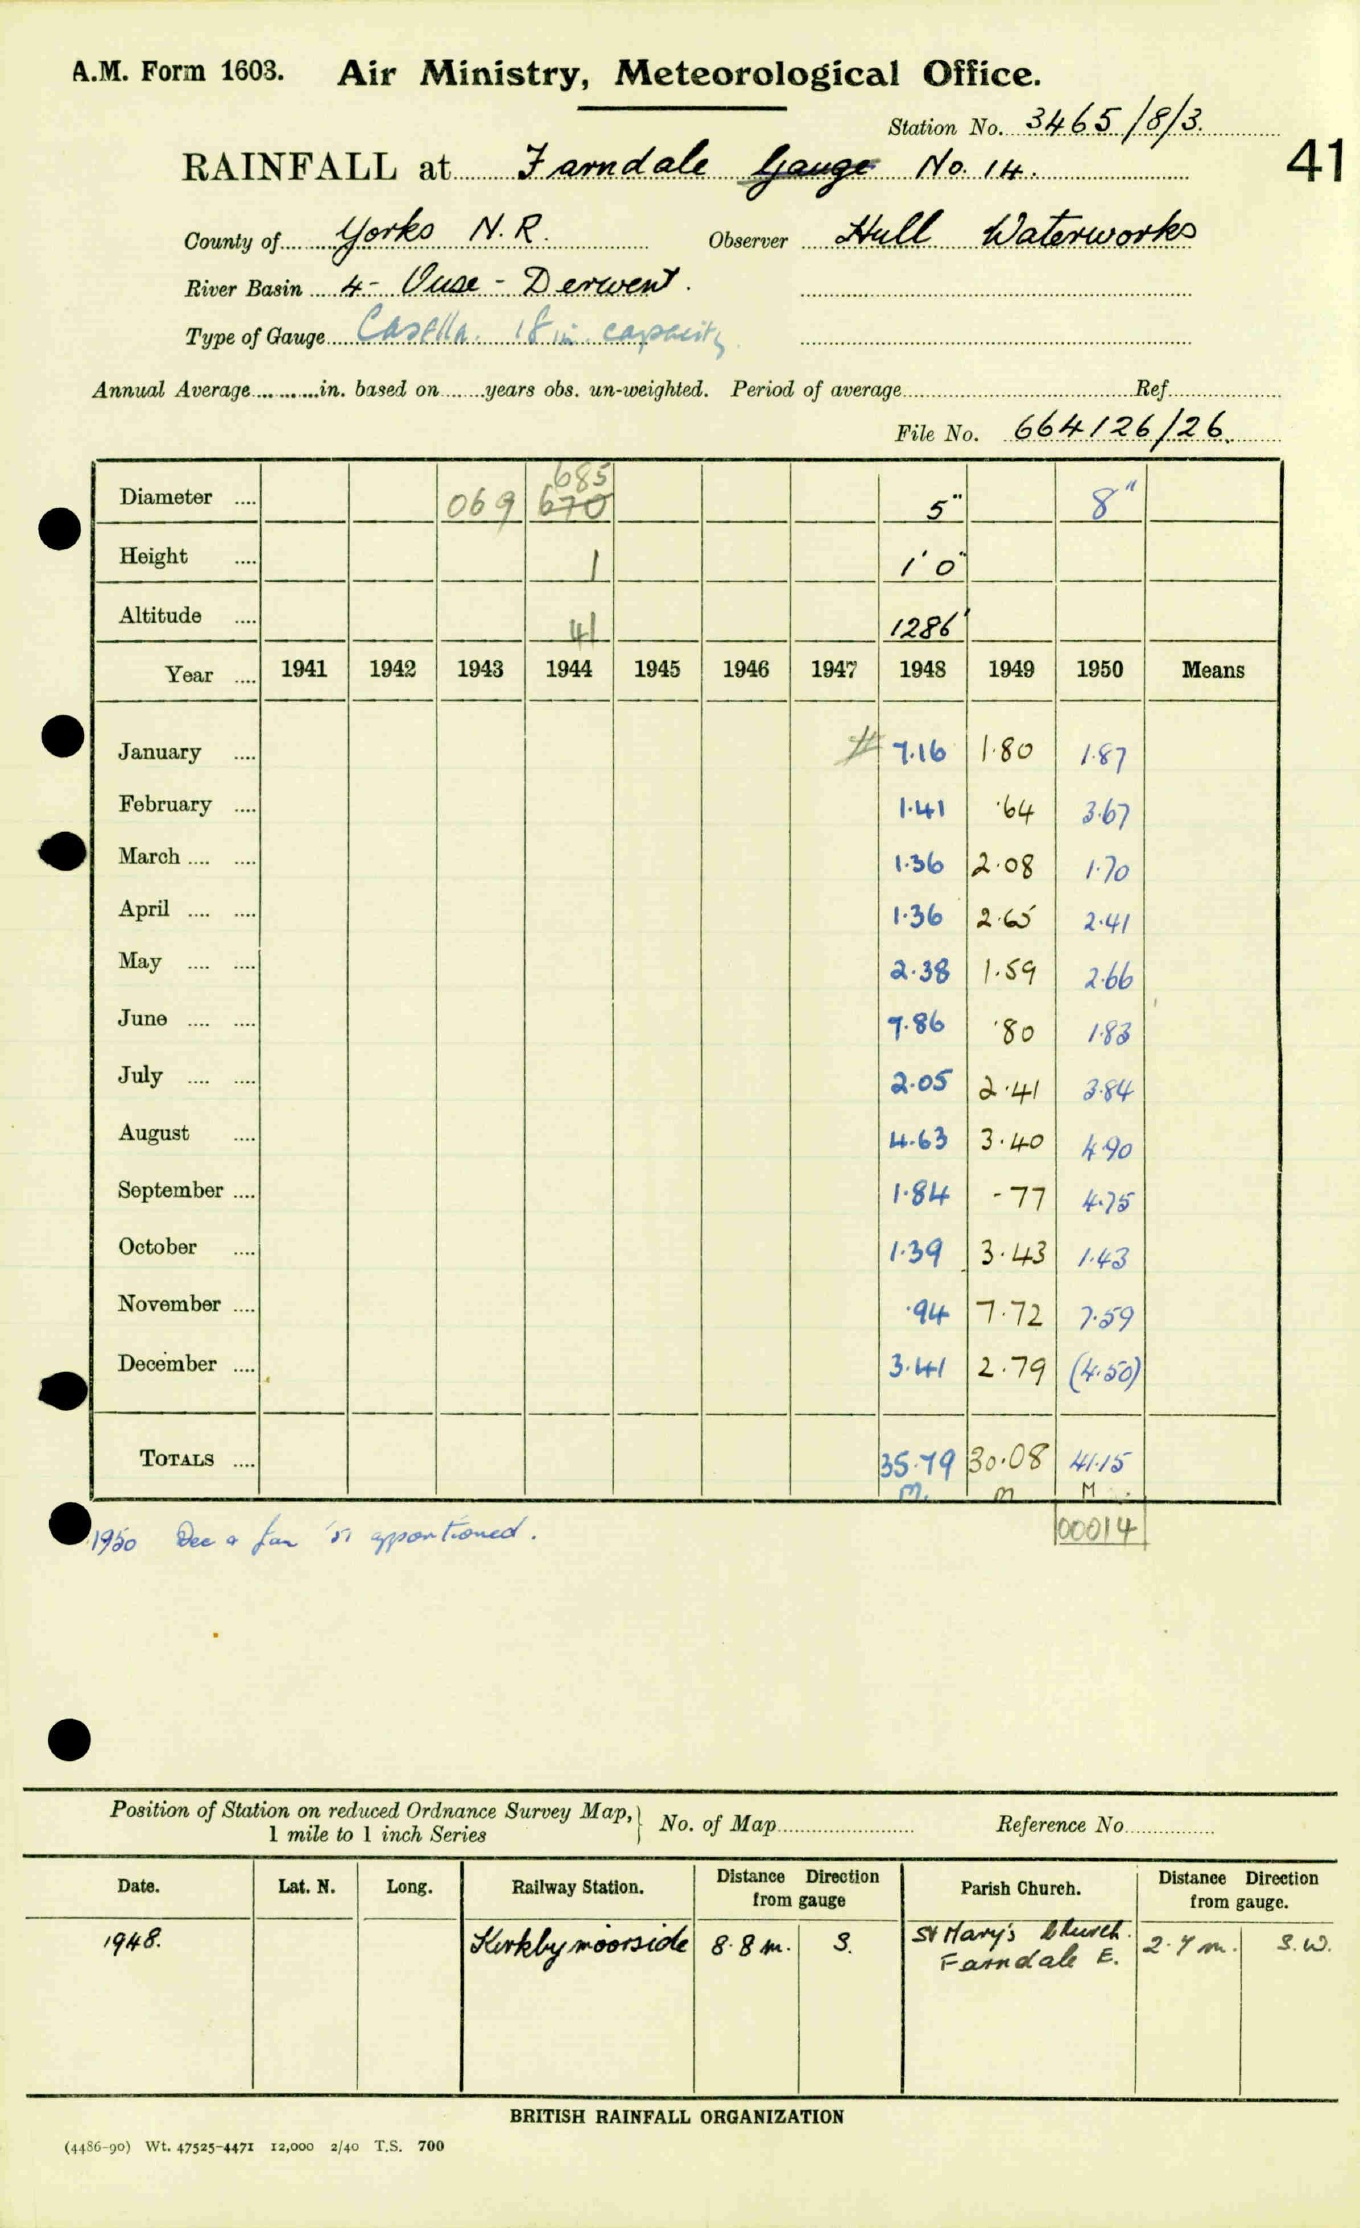 A.M. Form 1603. Air Ministry, Meteorological Office.
Station No. 3465/8/3.
41
RAINFALL at Farndale Gauge No. 14.
County of Yorks N.R. Observer Hull Waterworks
River Basin 4- Ouse - Derwent.
Type of Gauge Casella. 18 in. capacity
Annual Average ......... in. based on ....... years obs. un-weighted. Period of average ............ Ref ............
File No. 664126/26.
685
Diameter .... 069 670 5" 8"
Height .... 1 1' 0"
Altitude .... 41 1286'
Year .... 1941 1942 1943 1944 1945 1946 1947 1948 1949 1950 Means
January .... # 7.16 1.80 1.87
February .... 1.41 .64 3.67
March .... .... 1.36 2.08 1.70
April .... .... 1.36 2.65 2.41
May .... .... 2.38 1.59 2.66
June .... .... 7.86 .80 1.83
July .... .... 2.05 2.41 3.84
August .... 4.63 3.40 4.90
September .... 1.84 -77 4.75
October .... 1.39 3.43 1.43
November .... .94 7.72 7.59
December .... 3.41 2.79 (4.50)
TOTALS .... 35.79 30.08 41.15
M. M M
00014
1950 Dec & Jan '51 apportioned.
Position of Station on reduced Ordnance Survey Map, } No. of Map ............ Reference No ............
1 mile to 1 inch Series
Date. Lat. N. Long. Railway Station. Distance Direction from gauge Parish Church. Distance Direction from gauge.
1948. Kirkbymoorside 8.8 m. S. St Mary's Church. Farndale E. 2.7 m. S.W.
BRITISH RAINFALL ORGANIZATION
(4486-90) Wt. 47525-4471 12,000 2/40 T.S. 700